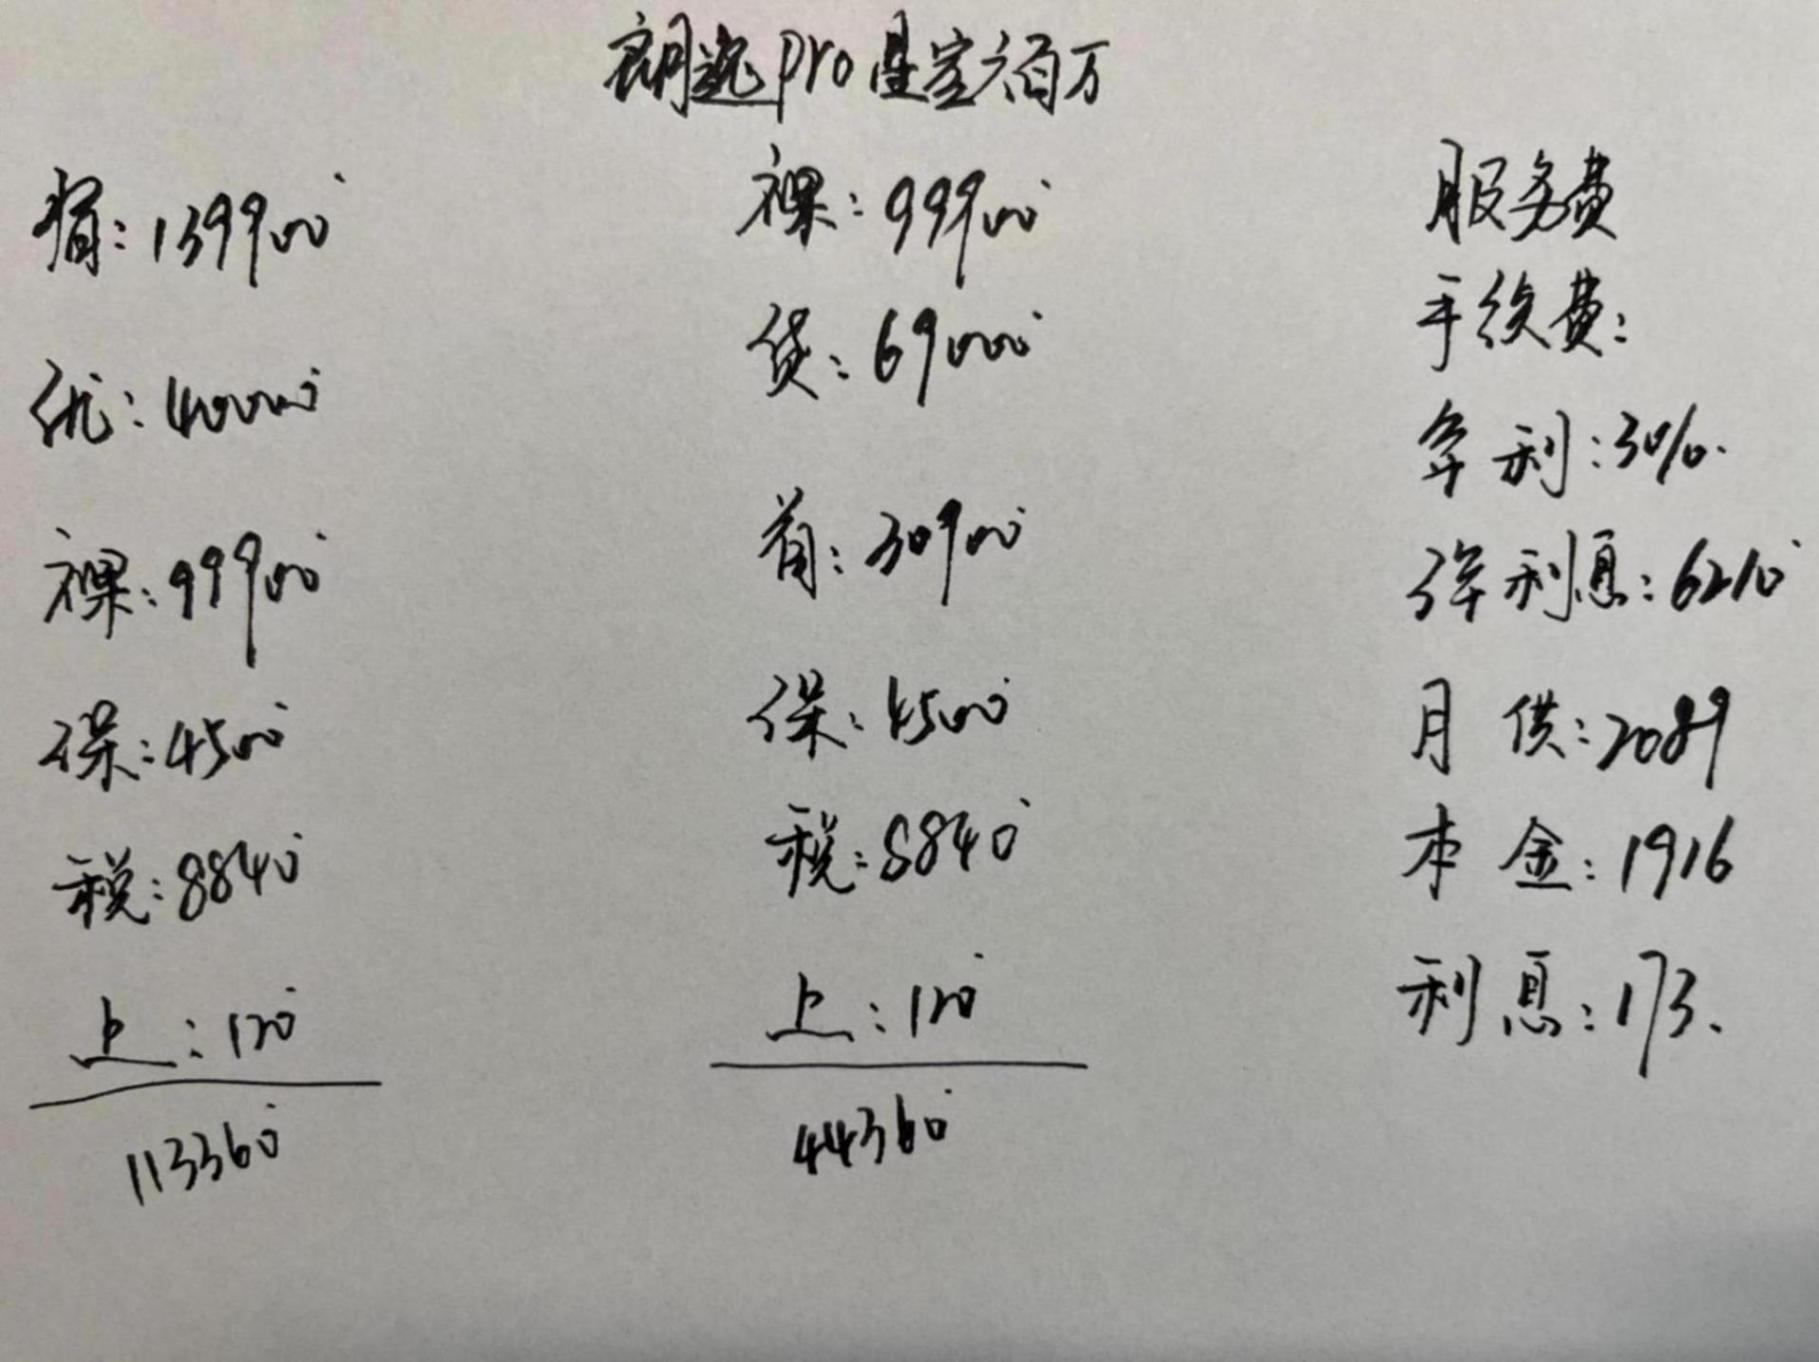 朗逸pro星空六百万
指:139900
优:40000
裸:99900
保:4500
税:8840
上:120
113360
裸:99900
贷:69000
首:30900
保:4500
税:8840
上:120
44360
服务费
手续费:
年利:3%.
3年利息:6210
月供:2089
本金:1916
利息:173.